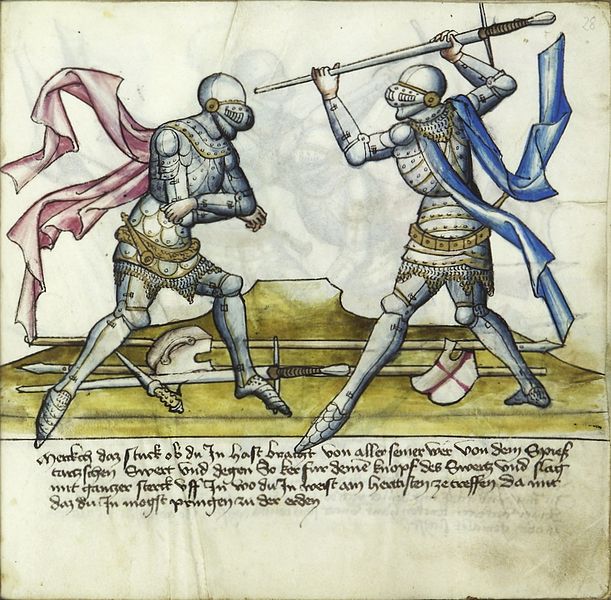 28
Merckch daz stuck ob du In hast bracht von aller seiner wer von dem Spieß
tartschen Swert vnd degen So ker für deine knopf des Swertz vnd slag
mit gantzer sterck vff In wo du In weist am hertisten ze treffen da mit
daz du In mogst pringen zu der erden